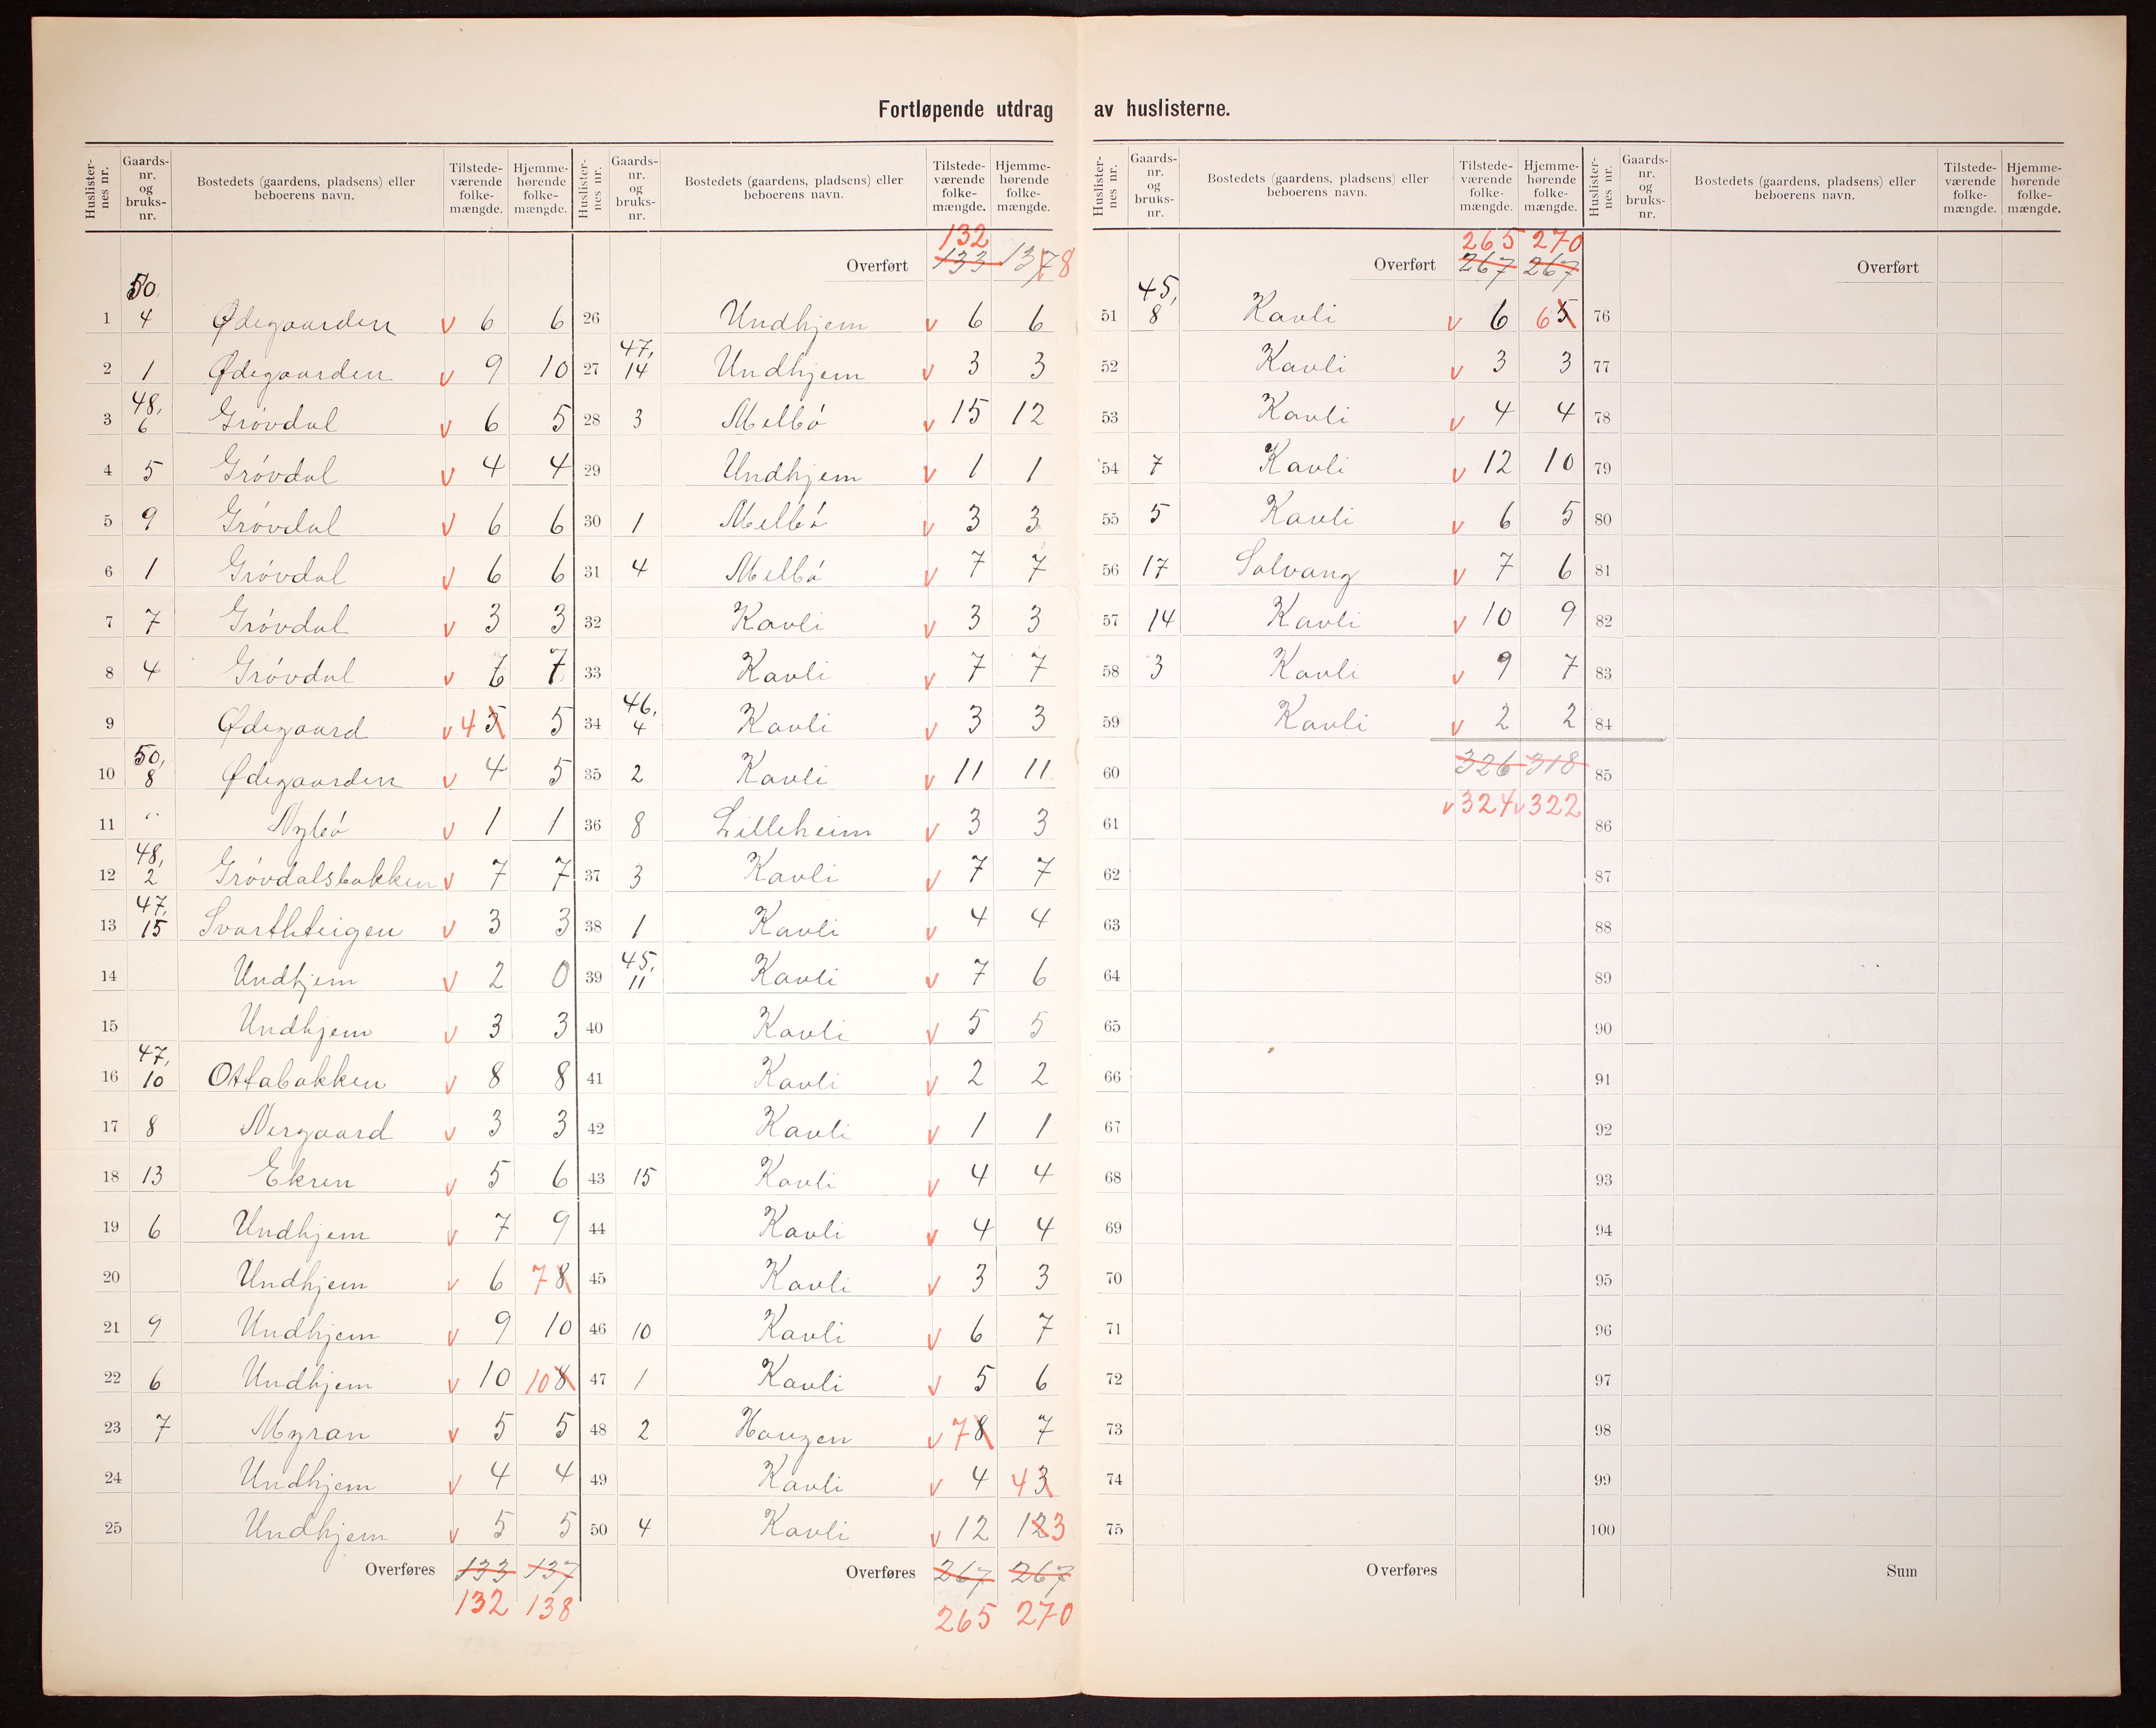 Fortløpende utdrag av huslisterne.
Huslister-nes nr. | Gaards-nr. og bruks-nr. | Bostedets (gaardens, pladsens) eller beboerens navn. | Tilstede-værende folke-mængde. | Hjemme-hørende folke-mængde.
1 50, 4 Ødegaarden v 6 6
2 1 Ødegaarden v 9 10
3 48, 6 Gróvdal v 6 5
4 5 Gróvdal v 4 4
5 9 Gróvdal v 6 6
6 1 Gróvdal v 6 6
7 7 Gróvdal v 3 3
8 4 Gróvdal v 6 7
9 Ødegaard v 4 5 5
10 50, 8 Ødegaarden v 4 5
11 " Nybó v 1 1
12 48, 2 Gróvdalsbakken v 7 7
13 47, 15 Svartteigen v 3 3
14 Undhjem v 2 0
15 Undhjem v 3 3
16 47, 10 Ottabakken v 8 8
17 8 Nergaard v 3 3
18 13 Ekren v 5 6
19 6 Undhjem v 7 9
20 Undhjem v 6 7 8
21 9 Undhjem v 9 10
22 6 Undhjem v 10 10 8
23 7 Myran v 5 5
24 Undhjem v 4 4
25 Undhjem v 5 5
Overføres 133 137
132 138
Huslister-nes nr. | Gaards-nr. og bruks-nr. | Bostedets (gaardens, pladsens) eller beboerens navn. | Tilstede-værende folke-mængde. | Hjemme-hørende folke-mængde.
132
Overført 133 137 8
26 Undhjem v 6 6
27 47, 14 Undhjem v 3 3
28 3 Melbó v 15 12
29 Undhjem v 1 1
30 1 Melbó v 3 3
31 4 Melbó v 7 7
32 Kavli v 3 3
33 Kavli v 7 7
34 46, 4 Kavli v 3 3
35 2 Kavli v 11 11
36 8 Lilleheim v 3 3
37 3 Kavli v 7 7
38 1 Kavli v 4 4
39 45, 11 Kavli v 7 6
40 Kavli v 5 5
41 Kavli v 2 2
42 Kavli v 1 1
43 15 Kavli v 4 4
44 Kavli v 4 4
45 Kavli v 3 3
46 10 Kavli v 6 7
47 1 Kavli v 5 6
48 2 Haugen v 7 8 7
49 Kavli v 4 4 3
50 4 Kavli v 12 12 3
Overføres 267 267
265 270
Huslister-nes nr. | Gaards-nr. og bruks-nr. | Bostedets (gaardens, pladsens) eller beboerens navn. | Tilstede-værende folke-mængde. | Hjemme-hørende folke-mængde.
265 270
Overført 267 267
51 45, 8 Kavli v 6 6 5
52 Kavli v 3 3
53 Kavli v 4 4
54 7 Kavli v 12 10
55 5 Kavli v 6 5
56 17 Solvang v 7 6
57 14 Kavli v 10 9
58 3 Kavli v 9 7
59 Kavli v 2 2
60 326 318
61 v 324 v 322
62
63
64
65
66
67
68
69
70
71
72
73
74
75
Overføres
Huslister-nes nr. | Gaards-nr. og bruks-nr. | Bostedets (gaardens, pladsens) eller beboerens navn. | Tilstede-værende folke-mængde. | Hjemme-hørende folke-mængde.
Overført
76
77
78
79
80
81
82
83
84
85
86
87
88
89
90
91
92
93
94
95
96
97
98
99
100
Sum